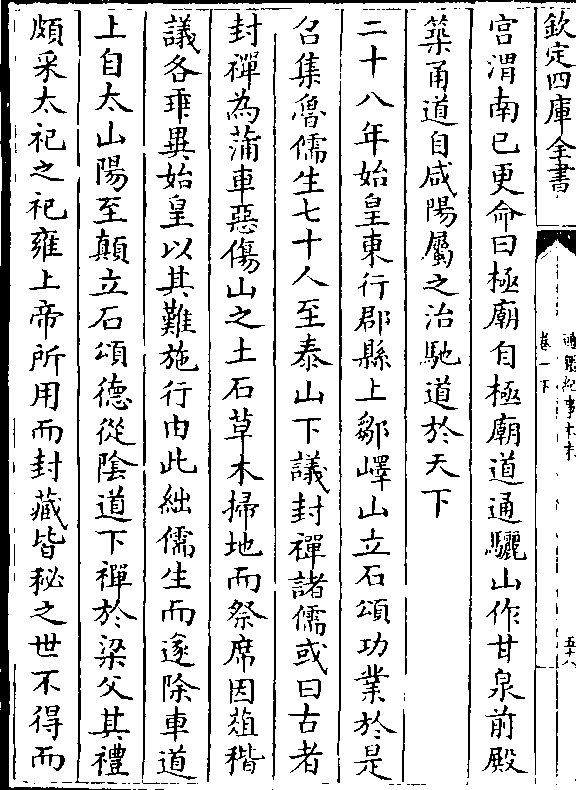 欽定四庫全書
通鑑紀事本末
卷一下
五十八
宫渭南已更命曰極廟自極廟道通驪山作甘泉前殿
築甬道自咸陽屬之治馳道於天下
二十八年始皇東行郡縣上鄒嶧山立石頌功業於是
召集魯儒生七十人至泰山下議封禪諸儒或曰古者
封禪為蒲車惡傷山之土石草木掃地而祭席因葅稭
議各乖異始皇以其難施行由此絀儒生而遂除車道
上自太山陽至顛立石頌德從陰道下禪於梁父其禮
頗采太祀之祀雍上帝所用而封藏皆秘之世不得而